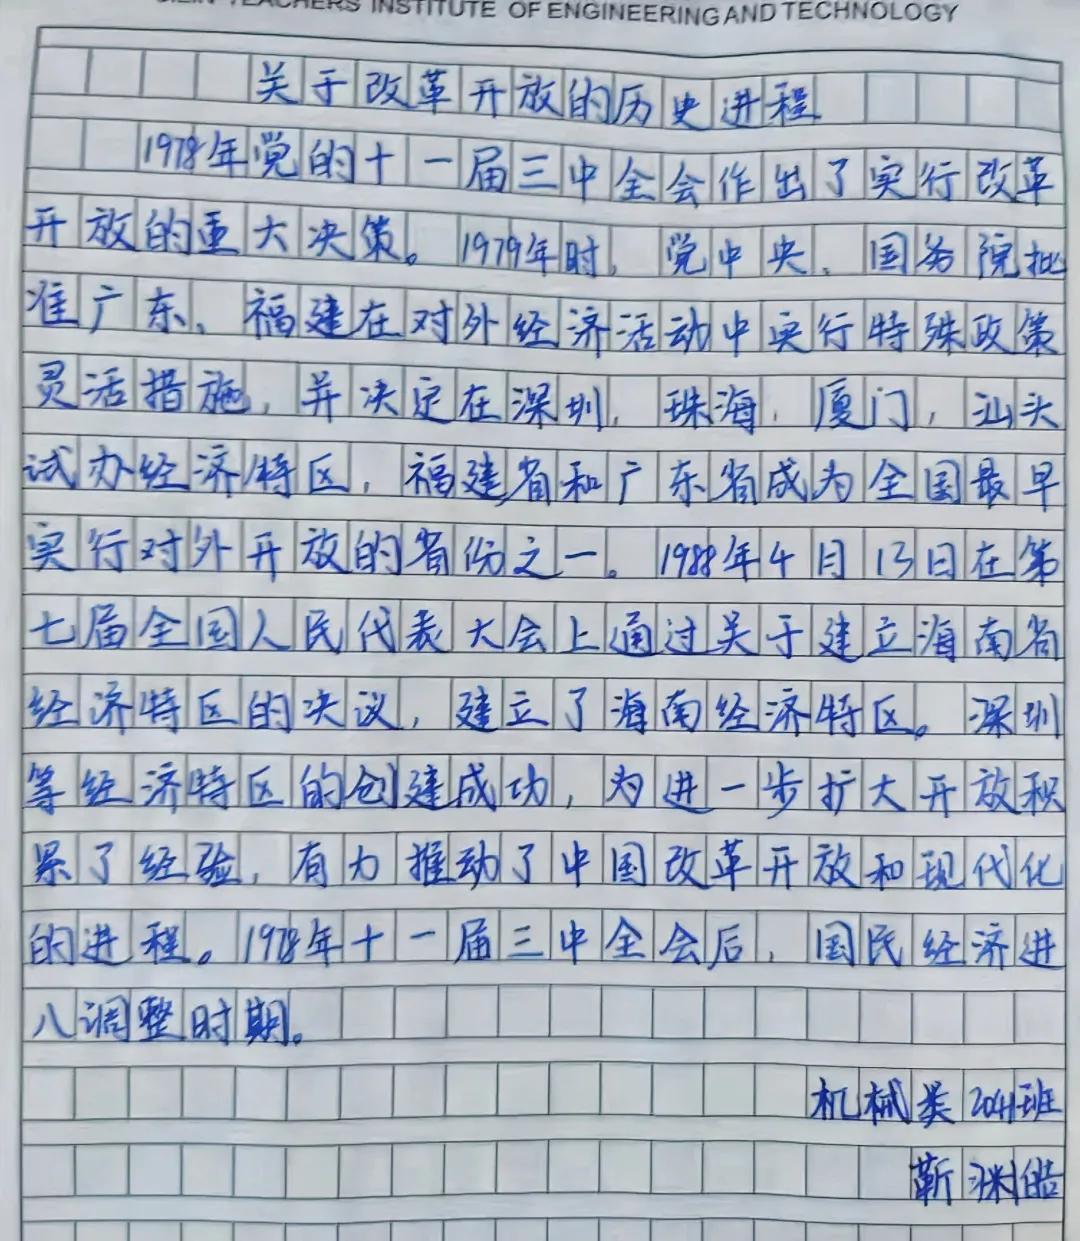 TEACHERS INSTITUTE OF ENGINEERING AND TECHNOLOGY
关于改革开放的历史进程
1978年党的十一届三中全会作出了实行改革
开放的重大决策。1979年时,党中央、国务院批
准广东、福建在对外经济活动中实行特殊政策
灵活措施,并决定在深圳,珠海,厦门,汕头
试办经济特区,福建省和广东省成为全国最早
实行对外开放的省份之一。1988年4月13日在第
七届全国人民代表大会上通过关于建立海南省
经济特区的决议,建立了海南经济特区。深圳
等经济特区的创建成功,为进一步扩大开放积
累了经验,有力推动了中国改革开放和现代化
的进程。1978年十一届三中全会后,国民经济进
八调整时期。
机械类2041班
靳渊皓